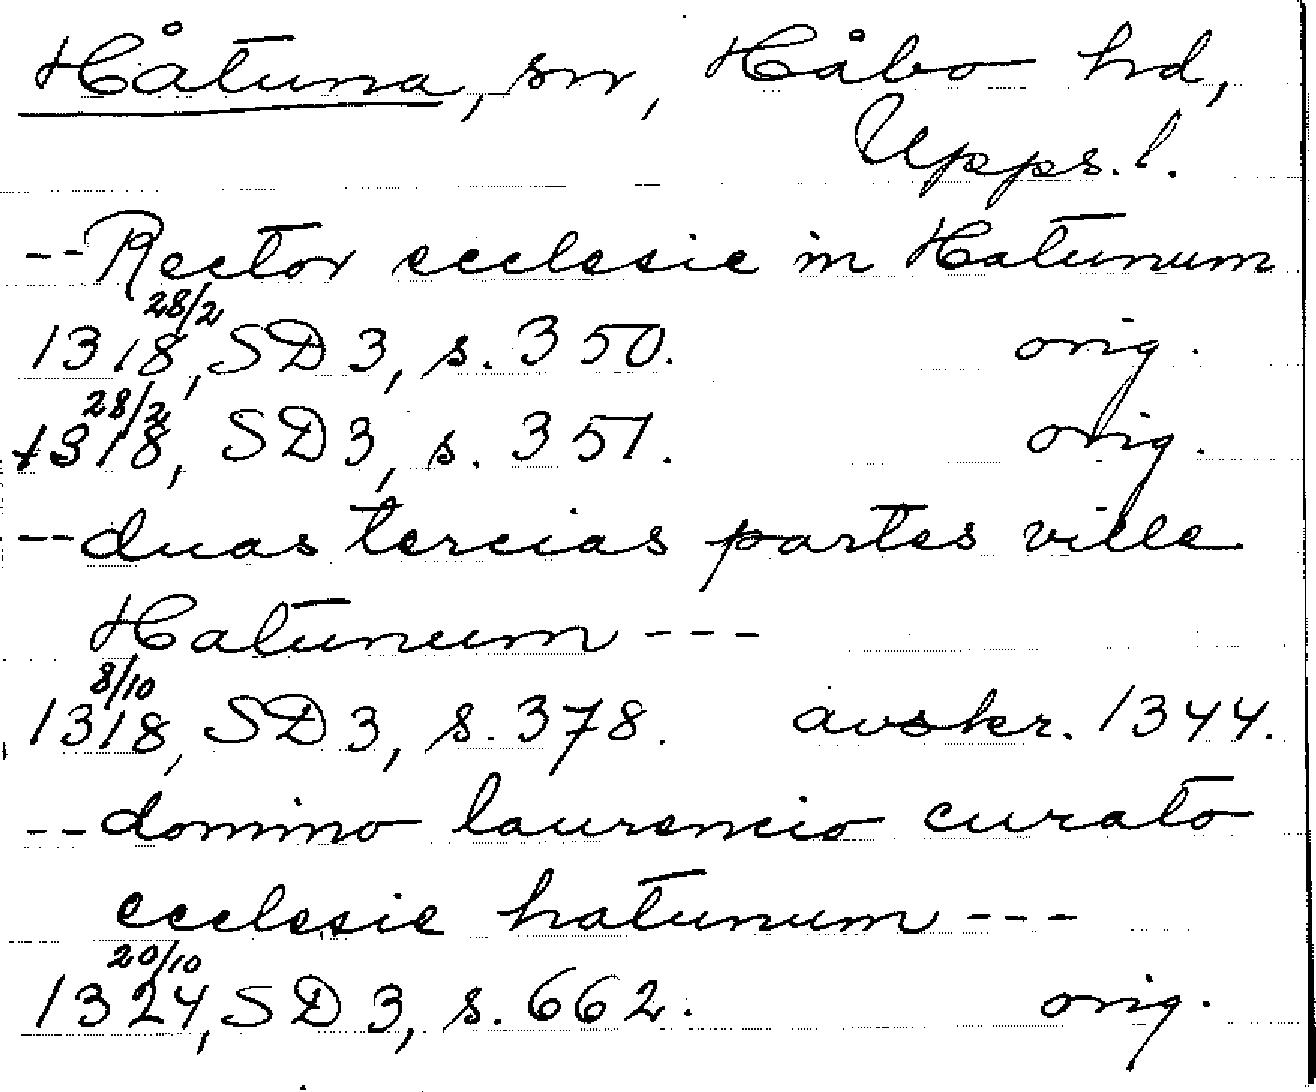 Håtuna, sn, Håbo hd,
Upps. l.
--Rector ecclesie in Hatunum
28/2
1318, SD 3, s. 350. orig.
28/2
1318, SD 3, s. 351. orig.
--duas tercias partes ville
Hatunum ---
8/10
1318, SD 3, s. 378. avskr. 1344.
--domino laurencio curato
ecclesie hatunum ---
20/10
1324, SD 3, s. 662. orig.